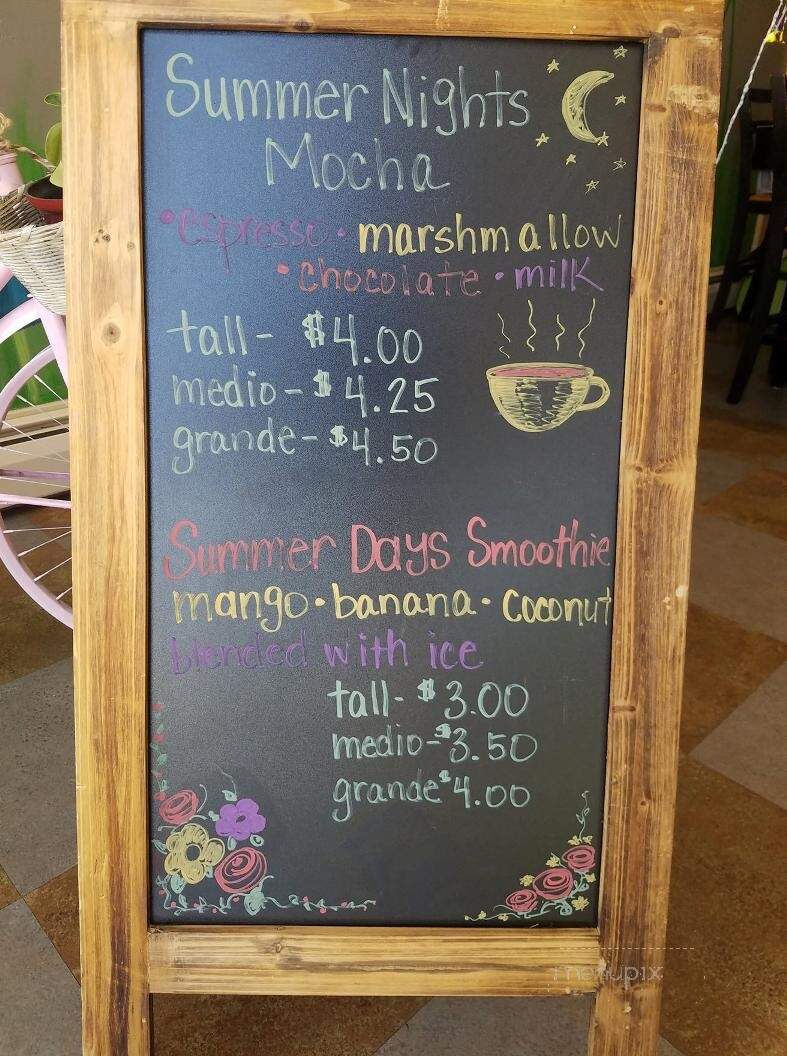 Summer Nights
Mocha
•espresso • marshmallow
•chocolate •milk
tall- $4.00
medio-$4.25
grande-$4.50
Summer Days Smoothie
mango•banana• coconut
blended with ice
tall- $3.00
medio-$3.50
grande$4.00
menupix